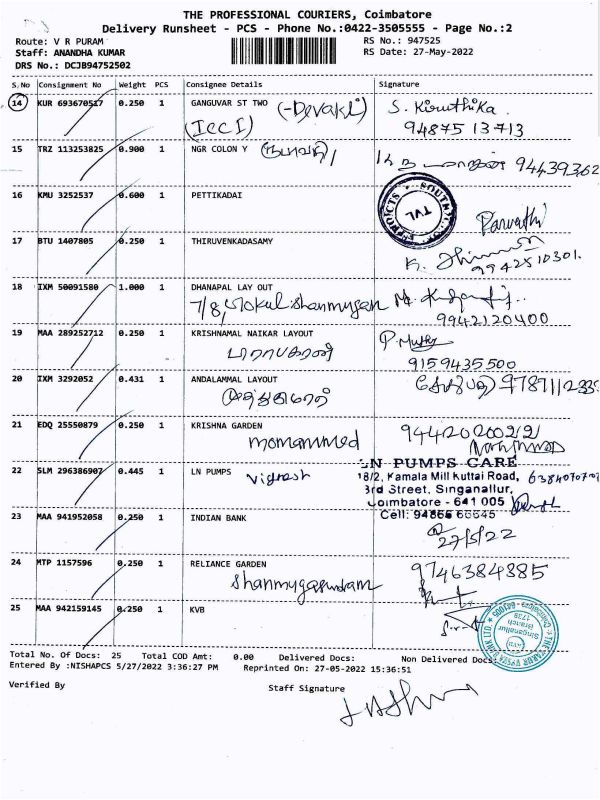 THE PROFESSIONAL COURIERS, Coimbatore
Delivery Runsheet - PCS - Phone No.:0422-3505555 - Page No.:2
Route: V R PURAM
RS No.: 947525
Staff: ANANDHA KUMAR
RS Date: 27-May-2022
DRS No.: DCJB94752502
S.No Consignment No Weight PCS Consignee Details Signature
14 KUR 693670517 0.250 1 GANGUVAR ST TWO (-Devaki) S. Kiruthika
(ICCI) 94875 13713
15 TRZ 113253825 0.900 1 NGR COLON Y
94439362
16 KMU 3252537 0.600 1 PETTIKADAI
TVL
Parvathi
17 BTU 1407805 0.250 1 THIRUVENKADASAMY
K.
9942510301.
18 IXM 50091580 1.000 1 DHANAPAL LAY OUT
7/8, Gokul. Shanmugan
9942120400
19 MAA 289252712 0.250 1 KRISHNAMAL NAIKAR LAYOUT P. Muthu
9159435500
20 IXM 3292052 0.431 1 ANDALAMMAL LAYOUT
21 EDQ 25550879 0.250 1 KRISHNA GARDEN
mohammed
22 SLM 296386907 0.445 1 LN PUMPS Vignesh
LN PUMPS CARE
18/2, Kamala Mill Kuttai Road,
3rd Street, Singanallur,
Coimbatore - 641 005
Cell: 94866 66645
23 MAA 941952058 0.250 1 INDIAN BANK
27/5/22
24 MTP 1157596 0.250 1 RELIANCE GARDEN 9746384885
Shanmugasundram
25 MAA 942159145 0.250 1 KVB
Singanallur
Branch
Total No. Of Docs: 25 Total COD Amt: 0.00 Delivered Docs: Non Delivered Docs:
Entered By :NISHAPCS 5/27/2022 3:36:27 PM Reprinted On: 27-05-2022 15:36:51
Verified By Staff Signature